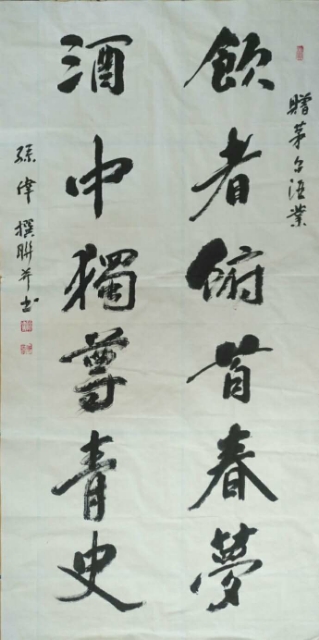 贈茅台酒業
飲者俯首春夢
酒中獨尊青史
孫偉撰聯并书